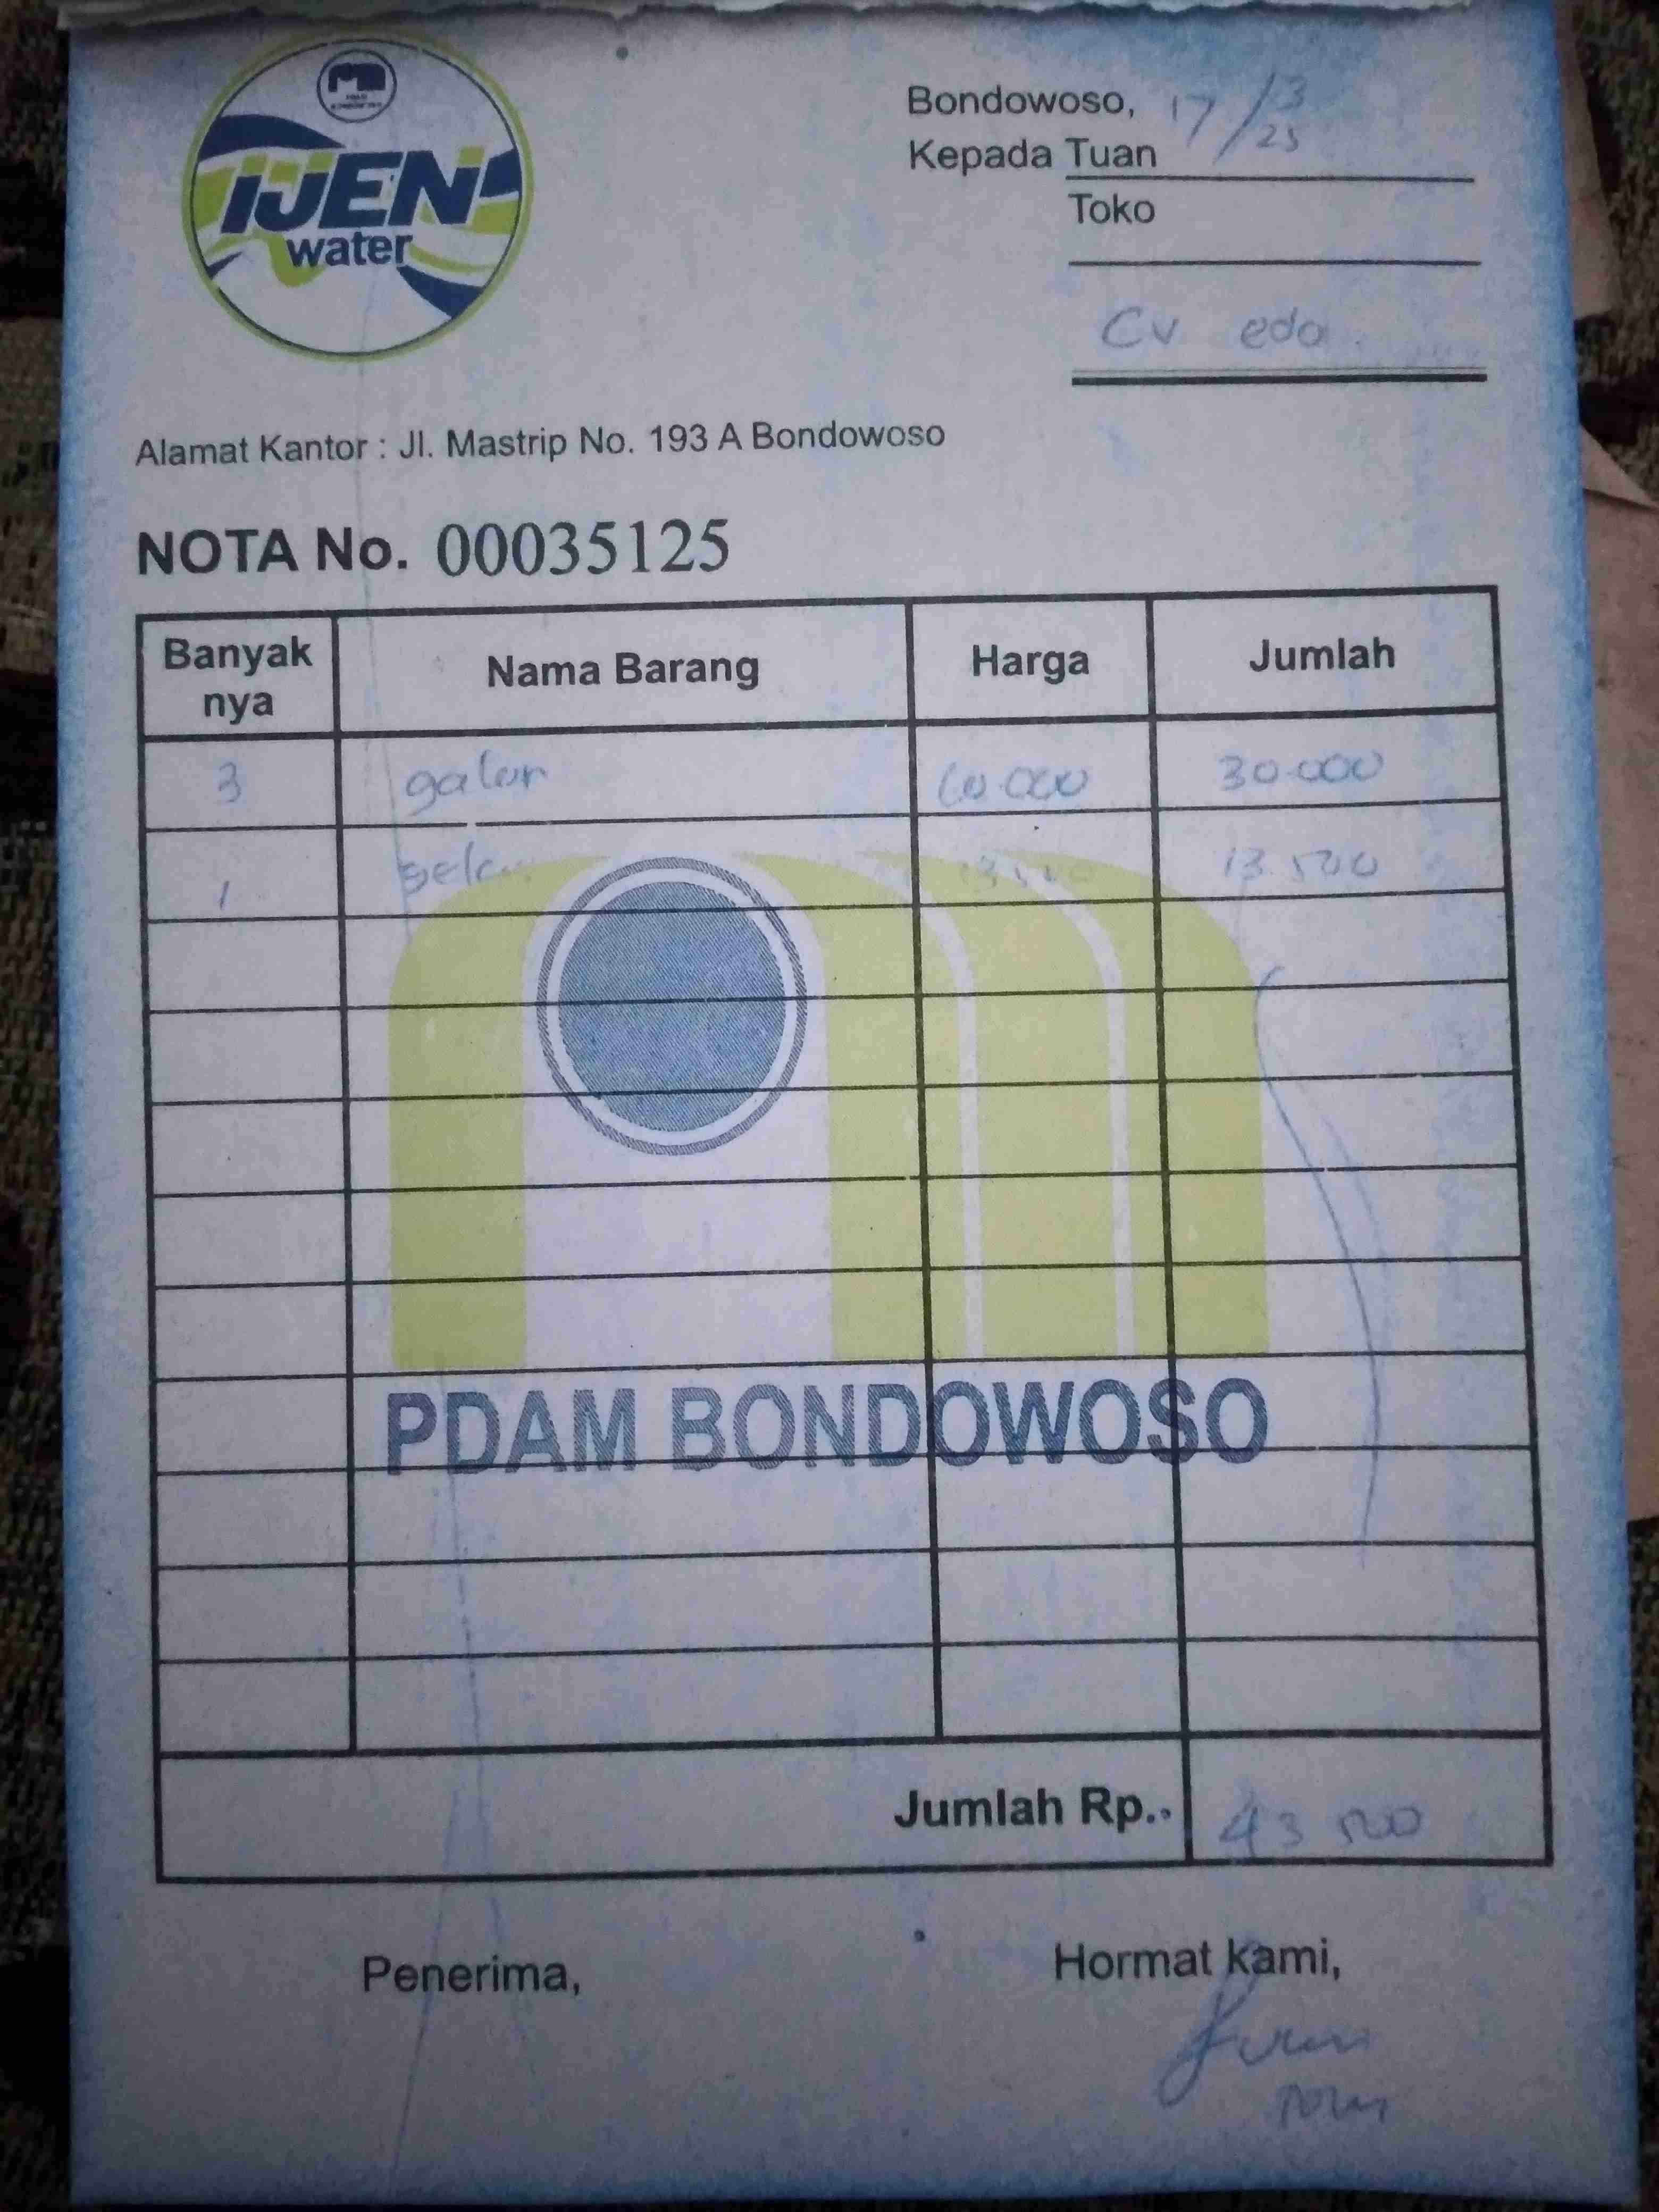 IJEN
water
Bondowoso, 17/3/25
Kepada Tuan
Toko
Cv eda
Alamat Kantor : Jl. Mastrip No. 193 A Bondowoso
NOTA No. 00035125
Banyak nya Nama Barang Harga Jumlah
3 galon 10.000 30.000
1 13.500 13.500
PDAM BONDOWOSO
Jumlah Rp.. 43 500
Penerima, Hormat kami,